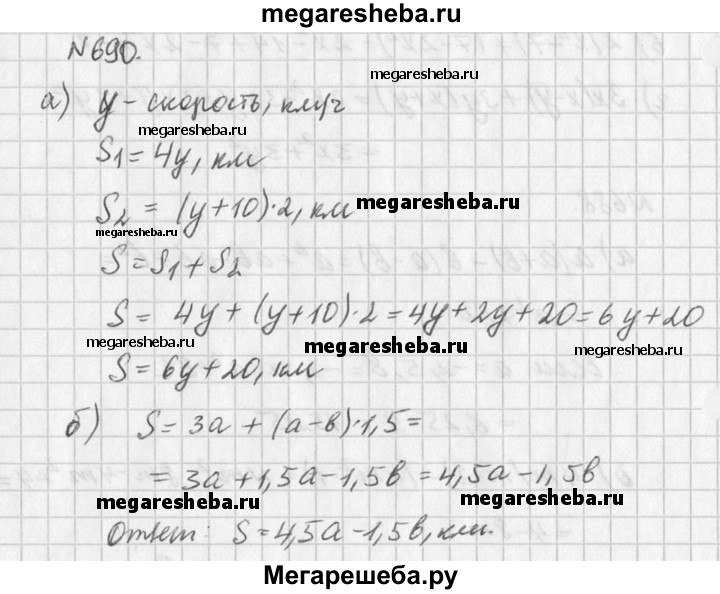 megaresheba.ru
№690.
megaresheba.ru
а) y - скорость, км/ч
megaresheba.ru
S1 = 4y, км
S2 = (y+10)·2, км megaresheba.ru
megaresheba.ru
S = S1 + S2
S = 4y + (y+10)·2 = 4y+2y+20 = 6y+20
megaresheba.ru megaresheba.ru
S = 6y+20, км
б) S = 3a + (a-в)·1,5 =
= 3a + 1,5a - 1,5в = 4,5a - 1,5в
megaresheba.ru megaresheba.ru
Ответ: S = 4,5a - 1,5в, км.
Мегарешеба.ру